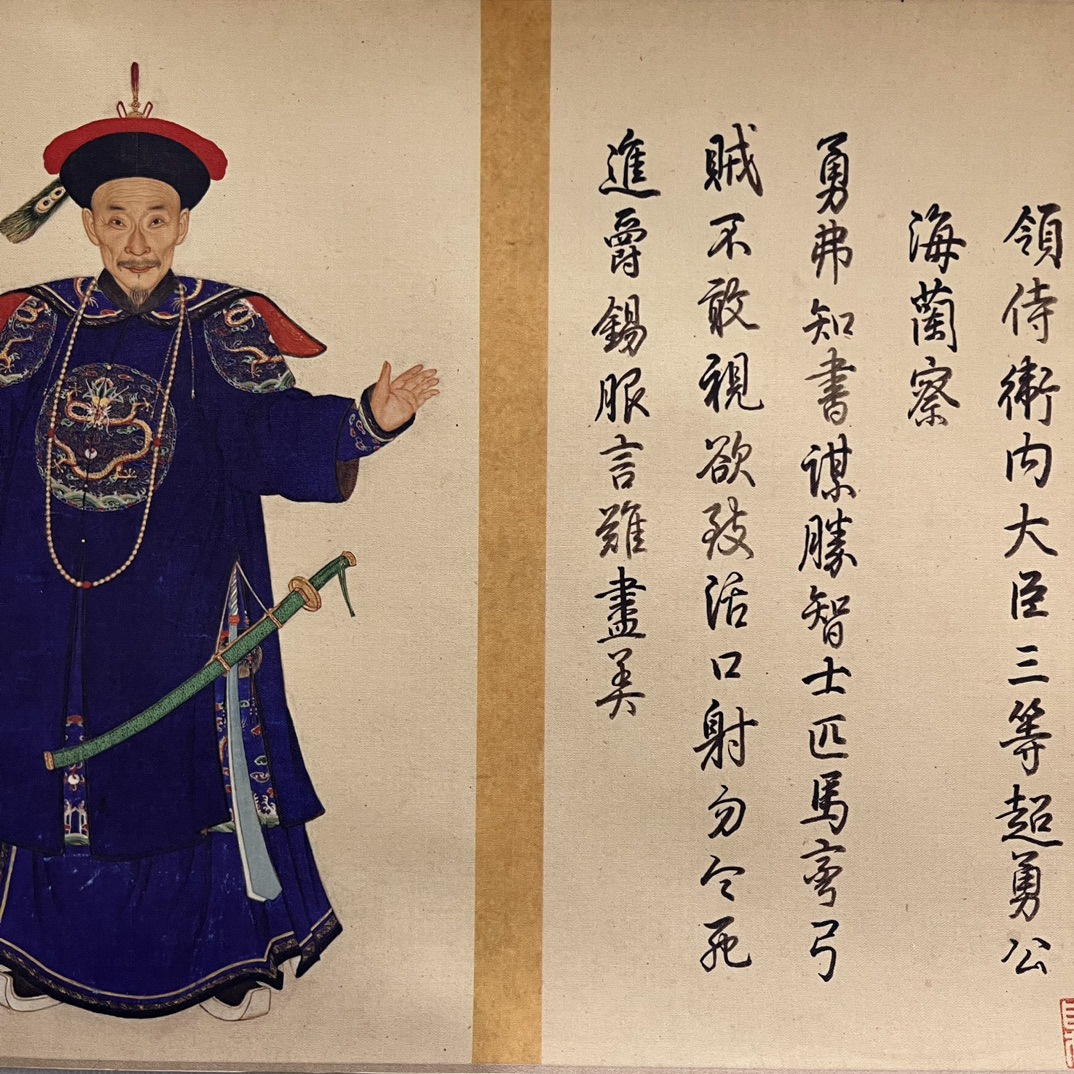 領侍衛内大臣三等超勇公
海蘭察
勇弗知書謀勝智士匹馬彎弓
賊不敢視欲致活口射勿令死
進爵錫服言難盡美